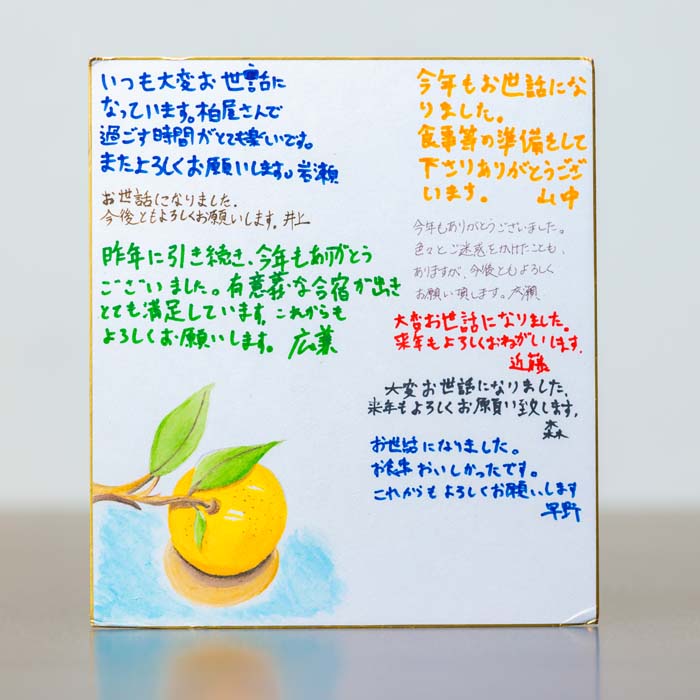 いつも大変お世話に
なっています。柏屋さんで
過ごす時間がとても楽しいです。
またよろしくお願いします。岩瀬
お世話になりました.
今後ともよろしくお願いします。井上
昨年に引き続き、今年もありがとう
ございました。有意義な合宿が出き
とても満足しています。これからも
よろしくお願いします。広葉
今年もお世話にな
りました。
食事等の準備をして
下さりありがとうござ
います。 山中
今年もありがとうございました。
色々とご迷惑をかけたことも、
ありますが、今後ともよろしく
お願い頂します。広瀬
大変お世話になりました。
来年もよろしくおねがいします.
近藤
大変お世話になりました、
来年もよろしくお願い致します。
森
お世話になりました。
お食事おいしかったです。
これからもよろしくお願いします
早野